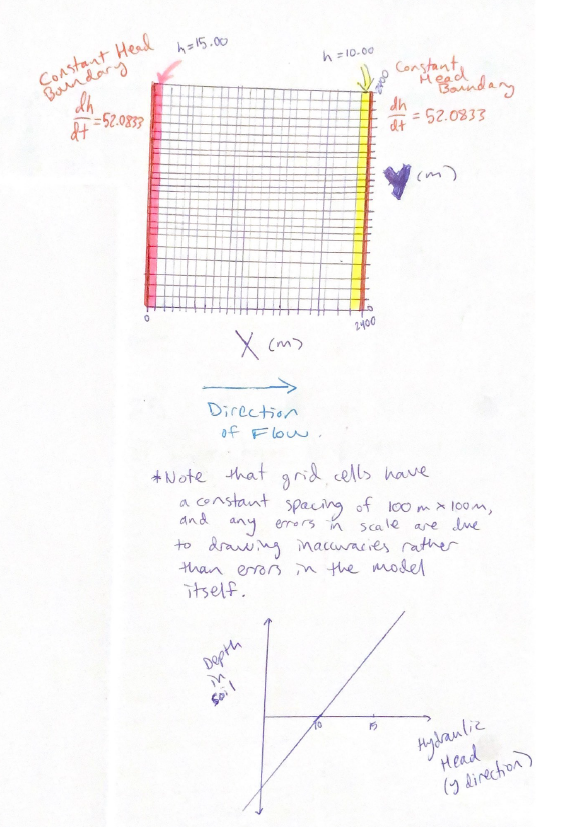 Constant Head
Boundary
dh
dt = 52.0833
h = 15.00
h = 10.00
Constant
Head
Boundary
dh
dt = 52.0833
2400
Y (m)
0
0
2400
X (m)
Direction
of Flow.
*Note that grid cells have
a constant spacing of 100 m x 100 m,
and any errors in scale are due
to drawing inaccuracies rather
than errors in the model
itself.
Depth
in
soil
10
15
Hydraulic
Head
(y direction)